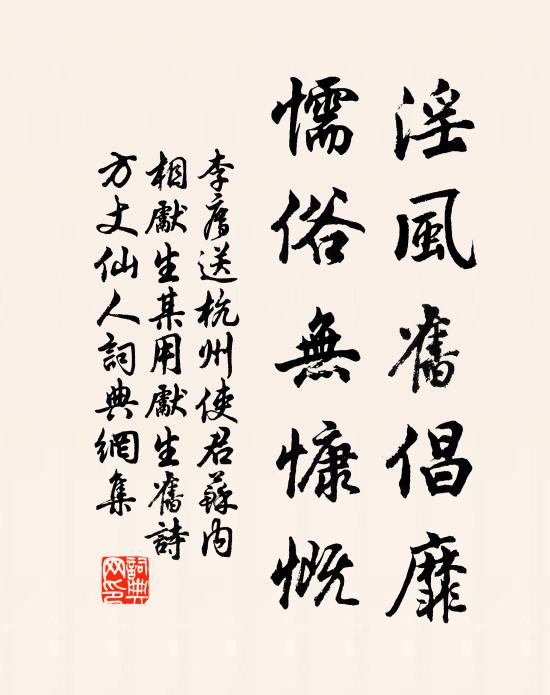 淫風舊倡靡
懦俗無慷慨
李廌送杭州使君蘇內
相獻生某用獻生舊詩
方丈仙人詞典網集
詞典网